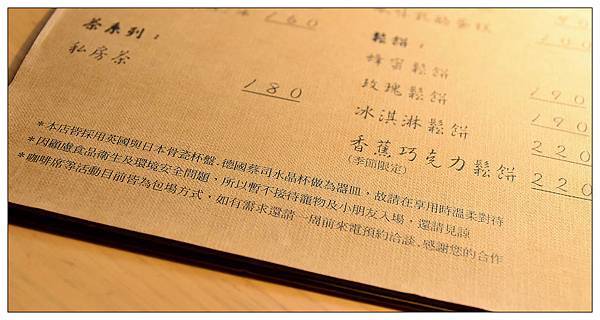 160
茶系列：
私房茶
180
100
鬆餅：
蜂蜜鬆餅 190
玫瑰鬆餅 190
冰淇淋鬆餅 220
香蕉巧克力鬆餅 220
(季節限定)
*本店皆採用英國與日本骨瓷杯盤、德國蔡司水晶杯做為器皿，故請在享用時溫柔對待
*因顧慮食品衛生及環境安全問題，所以暫不接待寵物及小朋友入場，還請見諒
*咖啡席等活動目前皆為包場方式，如有需求還請一周前來電預約洽談、感謝您的合作